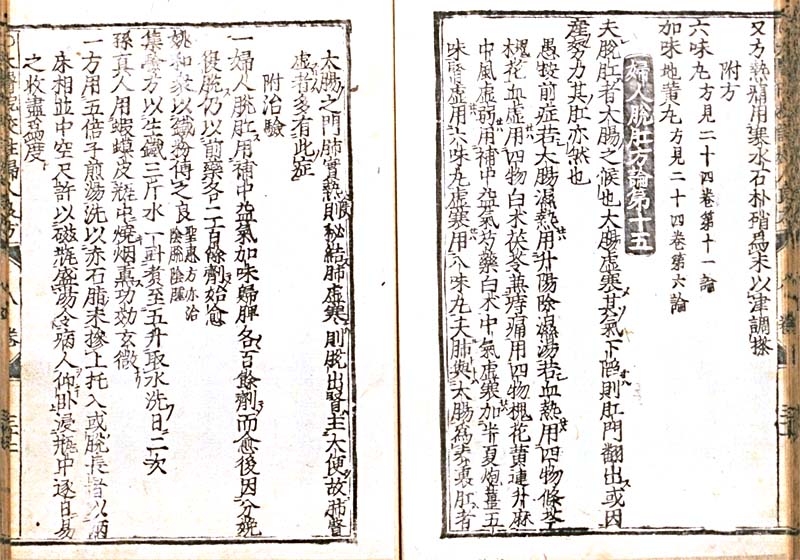 又方熱痛用寒水石朴硝爲末以津調搽
附方
六味丸方見二十四卷第十一論
加味地黄丸方見二十四卷第六論
婦人脫肛方論第十五
夫脫肛者大腸之候也大腸虛寒其氣下陷則肛門翻出或因
產努力其肛亦然也
愚按前症若大腸濕熱用升陽除濕湯若血熱用四物條芩
槐花血虛用四物白朮茯苓兼痔痛用四物槐花黄連升麻
中風虛弱用補中益氣芍藥白朮中氣虛寒加半夏炮薑五
味腎虛用六味丸虛寒用八味丸夫肺與大腸爲表裏肛者
大腸之門肺實熱則秘結肺虛寒則脫出腎主大便故肺腎
虛者多有此症
附治驗
一婦人脫肛用補中益氣加味歸脾各百餘劑而愈後因分娩
復脫仍以前藥各二百餘劑始愈
姚和衆以鐵粉傅之良聖惠方亦治陰脫陰脫
集驗方以生鐵三斤水一斗煮至五升取水洗日二次
孫真人用蝦蟆皮瓶中燒烟熏功効玄微
一方用五倍子煎湯洗以赤石脂末摻上托入或脫長者以兩
床相並中空尺許以磁瓶盛湯令病人仰卧浸瓶中逐日易
之收盡爲度
八卷